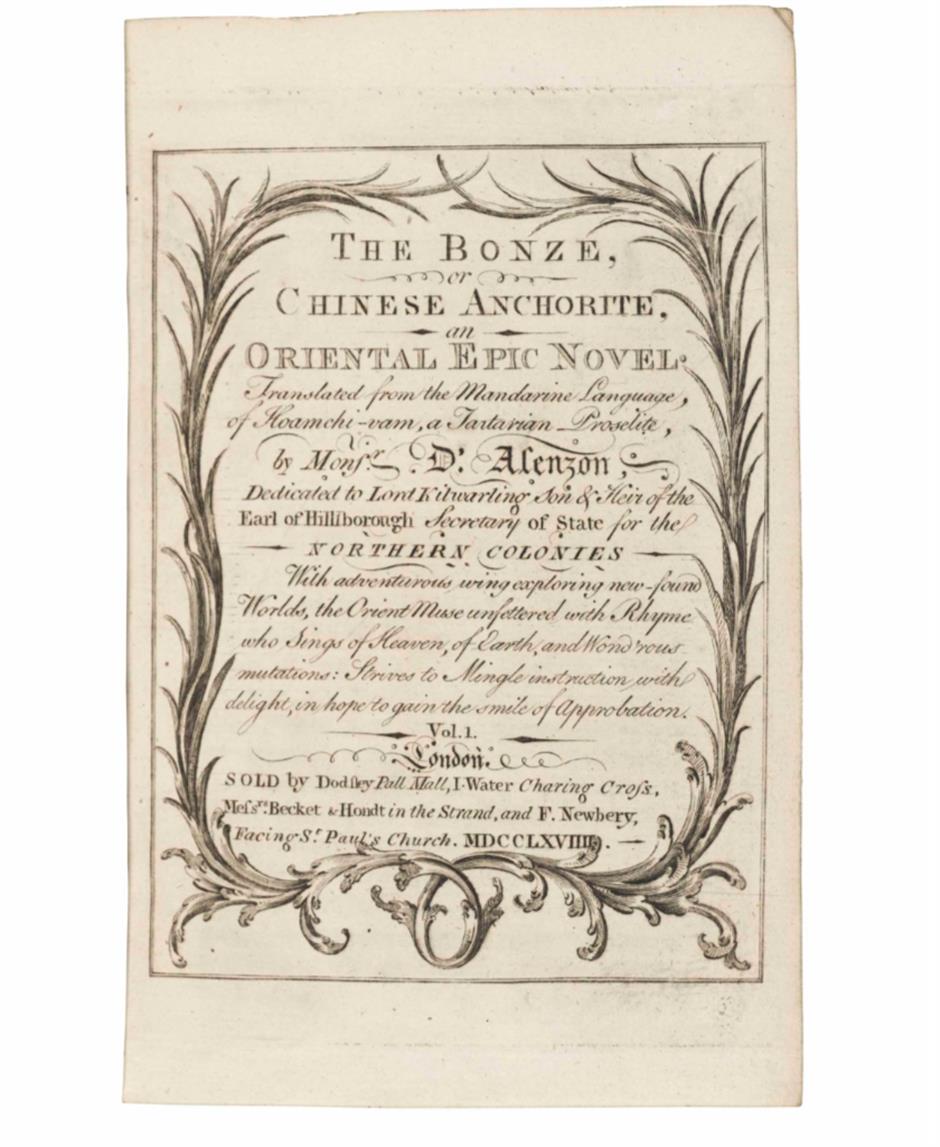 THE BONZE,
or
CHINESE ANCHORITE,
an
ORIENTAL EPIC NOVEL.
Translated from the Mandarine Language,
of Hoamchi-vam, a Tartarian Proselite,
by Monsr. D'. Alenzon,
Dedicated to Lord Kilwarling Son & Heir of the
Earl of Hillsborough Secretary of State for the
NORTHERN COLONIES
With adventurous wing exploring new-found
Worlds, the Orient Muse unfettered with Rhyme
who Sings of Heaven, of Earth, and Wond'rous
mutations: Strives to Mingle instruction with
delight, in hope to gain the smile of Approbation.
Vol. 1.
London.
SOLD by Dodsley Pall Mall, I. Water Charing Cross,
Messrs. Becket & Hondt in the Strand, and F. Newbery,
Facing St. Paul's Church. MDCCLXVIIII. —